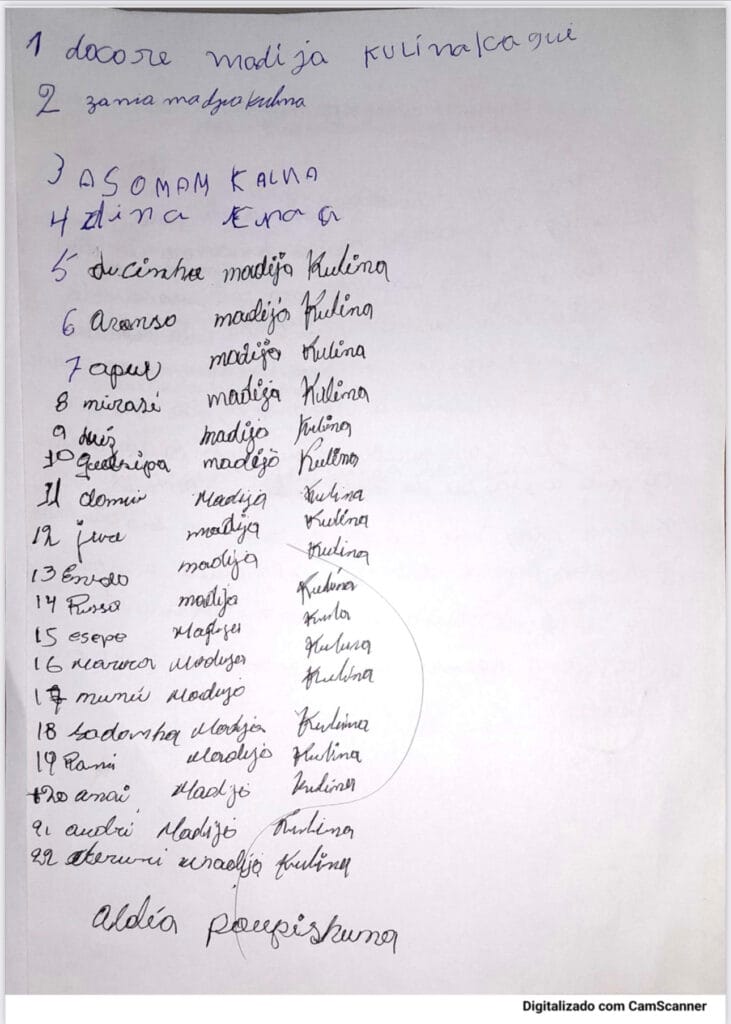 1 docore madija KULINA Kaqui
2 zania madzia kulina
3 ASOMAM KALNA
4 dina
5 ducinha madija Kulina
6 Aronso madija Kulina
7 apui madija Kulina
8 mirasi madija Kulina
9 Luiz madijo Kulina
10 madijo Kulina
11 domin Madija Kulina
12 madija Kulina
13 madija Kulina
14 Russo madija Kulina
15 esepe
16
17 munú Madijo Kulina
18 Madija Kulina
19 Rami Madijo Kulina
20 anai Madijo Kulina
21 andri Madijo Kulina
22 madija Kulina
aldéa
Digitalizado com CamScanner